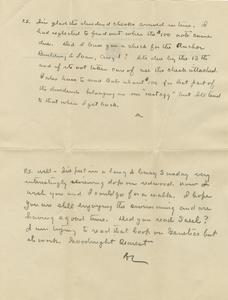 P.S. Im glad the dividend checks arrived in time. I
had neglected to find out when the $100 note came
due. Did I leave you a check for the Anchor
Building & Loan, Craig? If due by the 12th
and if its not taken care of use the check attached.
I also have to send Bob about $100 for his part of
the dividends belonging in our "nest egg" but Ill tend
to that when I get back.
A
P.S. Well - Ive put in a long & busy Sunday very
interestingly
wish you and I could go for a walk. I hope
you are still enjoying the swimming and are
having a good time. Did you read
I am trying to read that book on Genetics but
its work. Goodnight Dearest
AL